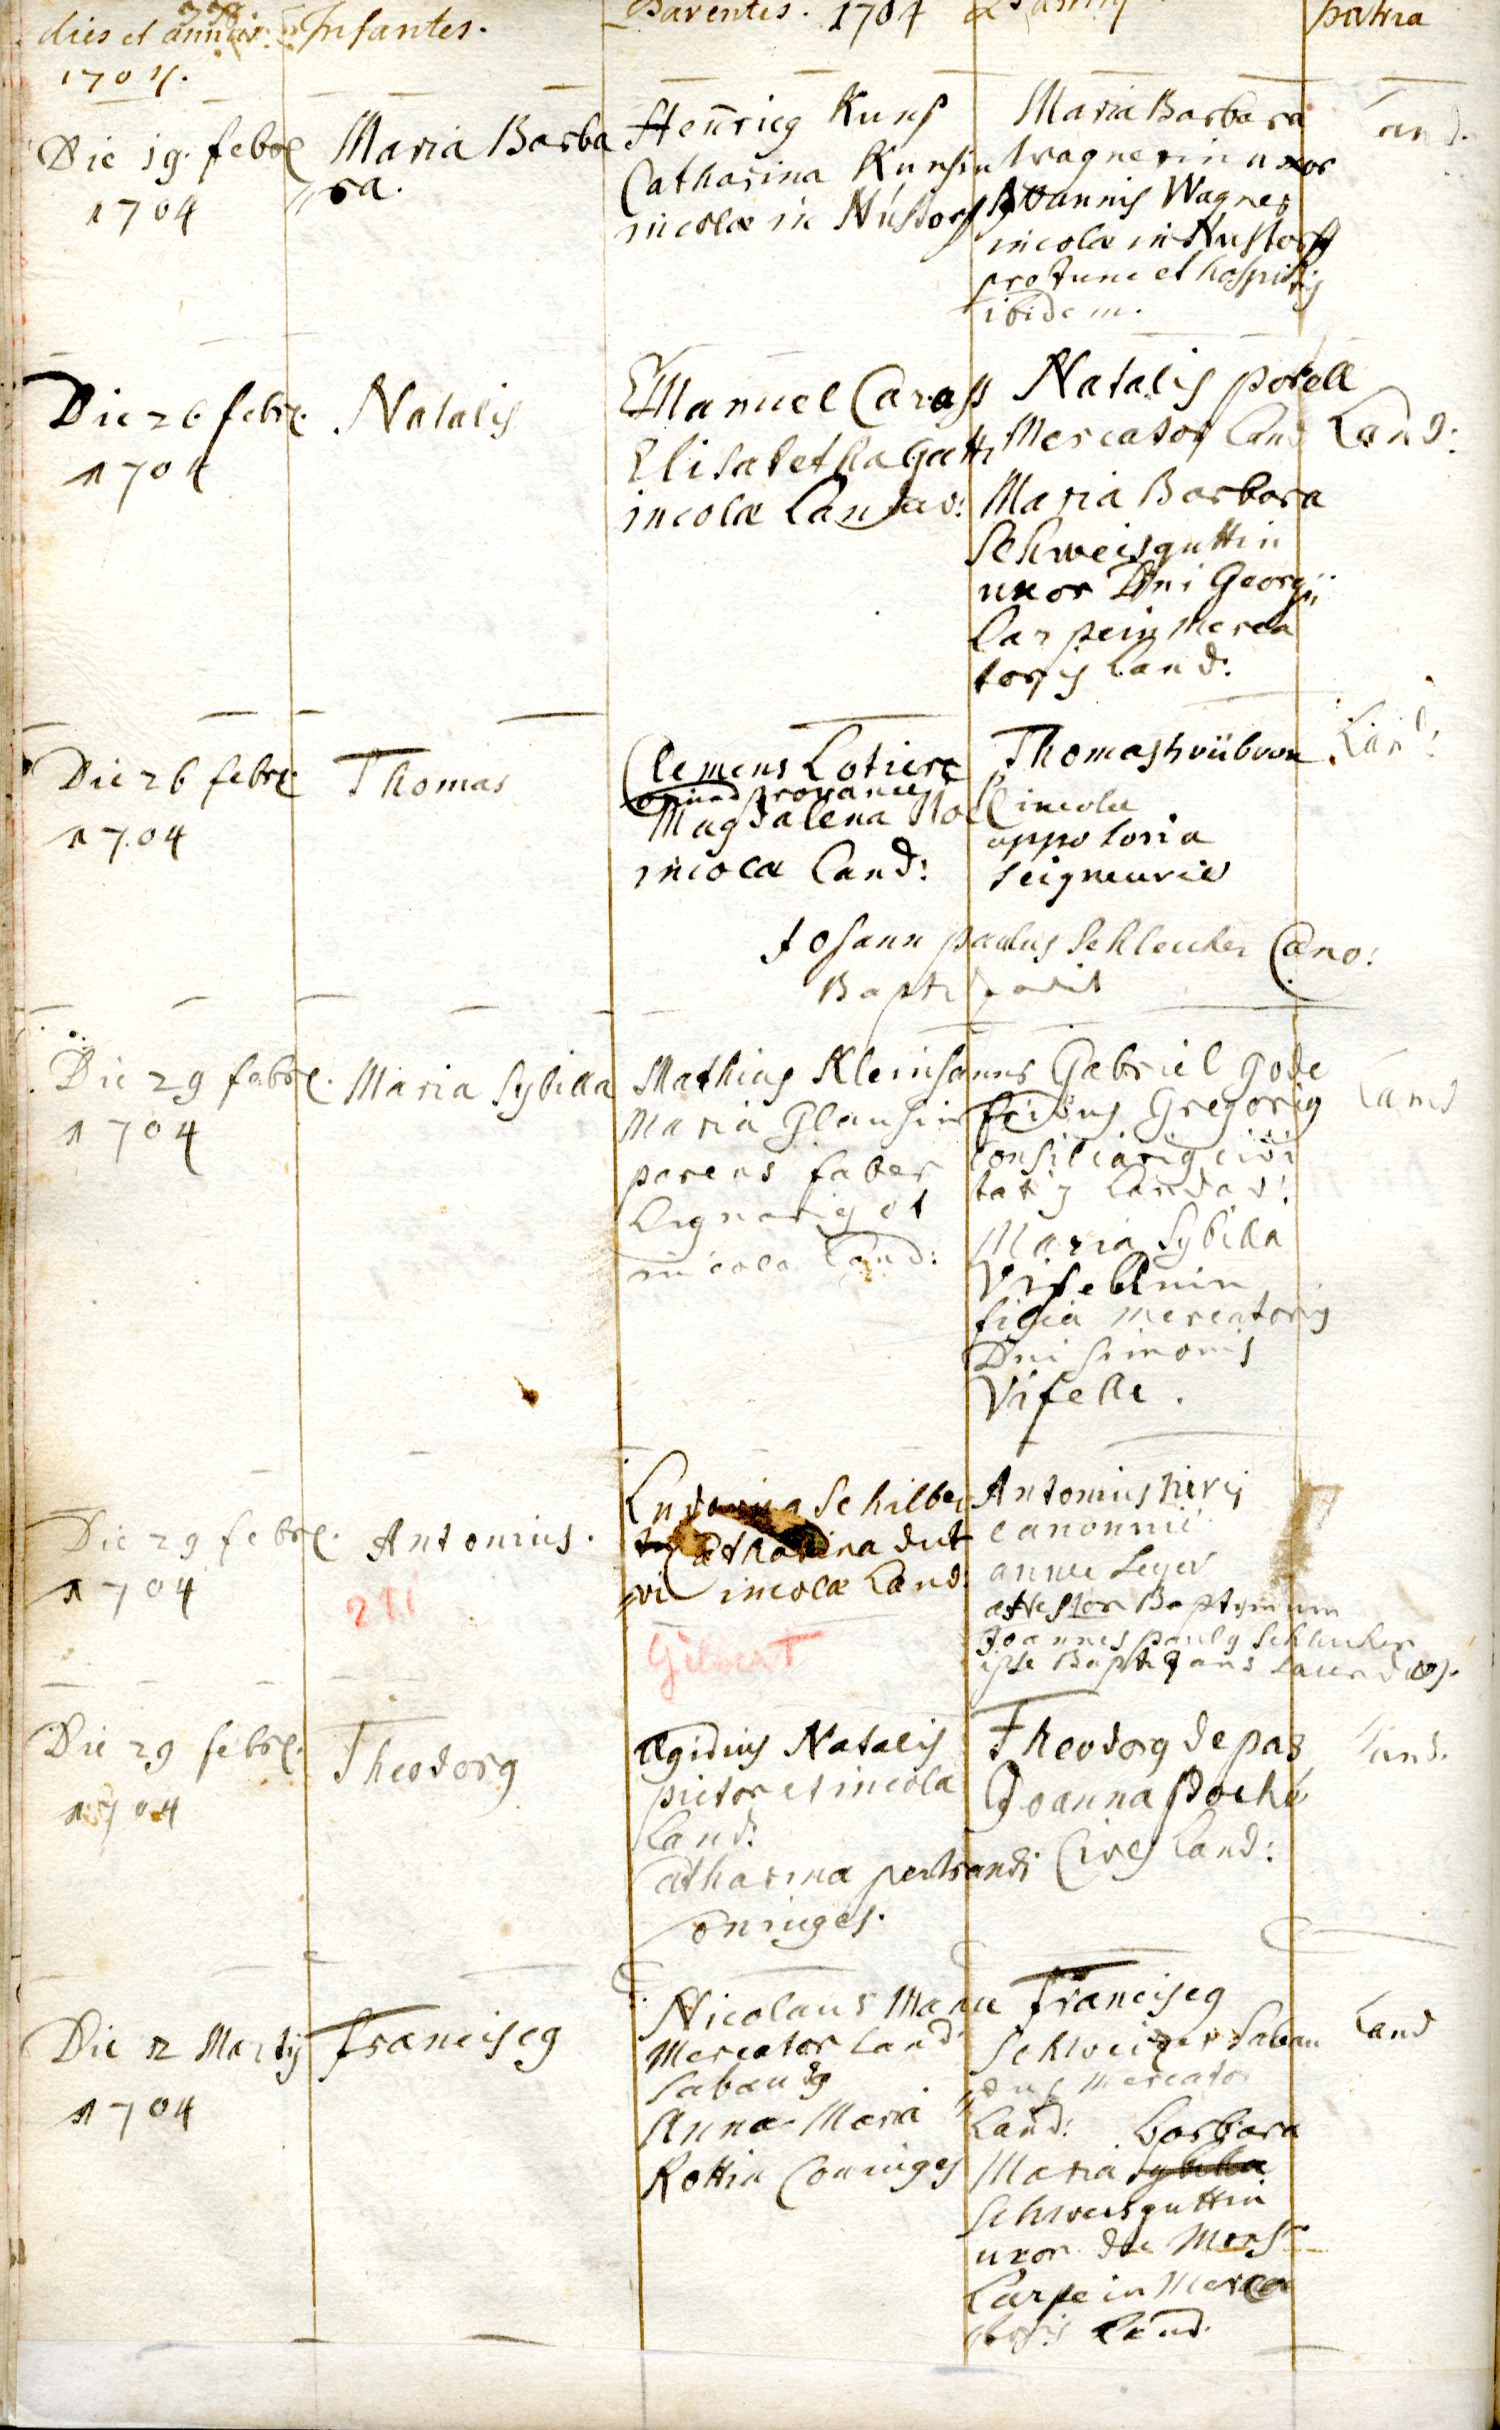 dies et annus. Infantes. Parentes. 1704 patria
1704.
Die 19. febre
1704
Maria Barba
ra.
Henrieg Kuns
Catharina Kunsin
incolæ in Nusdorff
Maria Barbara
Wagnerin uxor
Joannis Wagner
incolæ in Nusdorff
pro tunc et hospitis
ibidem.
Land.
Die 26 febre.
1704
Natalis
Emanuel Carass
Elisabetha Gatti
incolæ Landav:
Natalis potell
Mercator Land
Maria Barbara
Schweisguttin
uxor Dni Georgii
Carpein Merca
toris Land:
Land:
Die 26 febre
1704
Thomas
Clemens Lotiere
Magdalena
incolæ Land:
Thomas
incola
appotoria
seigneurie
Land:
Johann paulus Schleucher Cano:
Baptizavit
Die 29 febre.
1704
Maria Sybilla
Mathias Kleinhanns
Maria Glausin
parens faber
Lignarig et
incola Land:
Gabriel gode
Gregorig
consiliarig civi
tatis Landav:
Maria Sybilla
Vifellnin
filia mercatoris
Dni Simonis
Vifelle.
Land
Die 29 febre.
1704
Antonius.
271
Ludovicus Schilber
Catharina dut
incolæ Land.
Gilbert
Antonius
canonnie
anne Leger
attestor Baptismum
Joannes paulg Schleucher
ipse Baptizans
Die 29 febre.
1704
Theodorg
Ægidius Natalis
pictor et incola
Land:
Catharina pertrandi
Coniuges.
Theodorg depas
Joanna Poché
Cives Land:
Land.
Die 12 Martij
1704
Franciscg
Nicolaus Manu
Mercator Land
Sabaudg
Anna Maria
Rottin Coniuges
Franciscg
Schweizer Sabau
dus Mercator
Land: Barbara
Maria Sybilla
Schweisguttin
uxor de Mons
Carpein Merca
toris Land.
Land